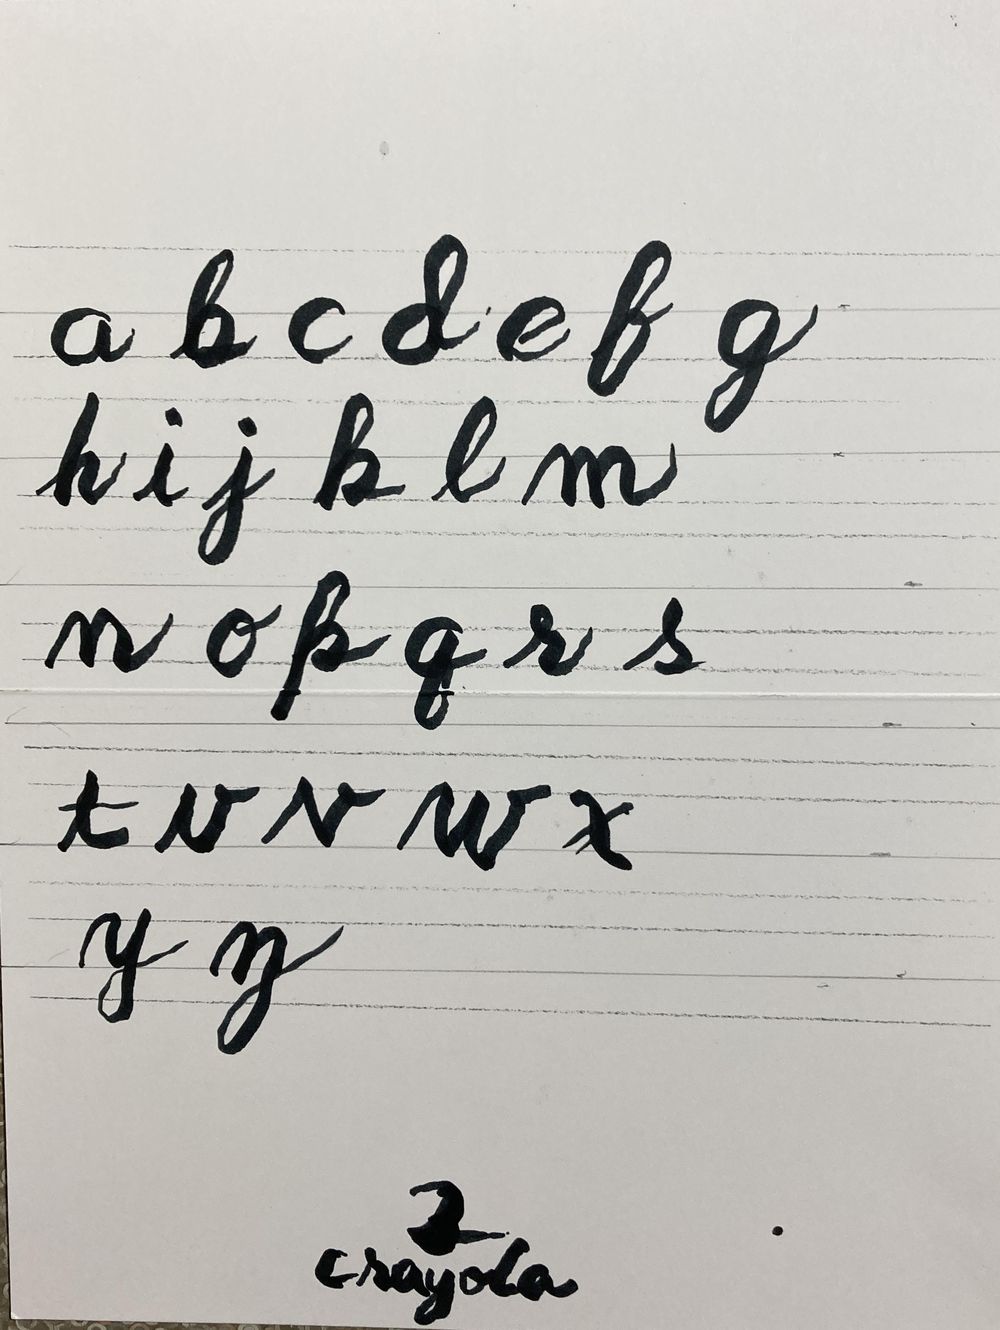 a b c d e f g
h i j k l m
n o p q r s
t u v w x
y z
2
crayola